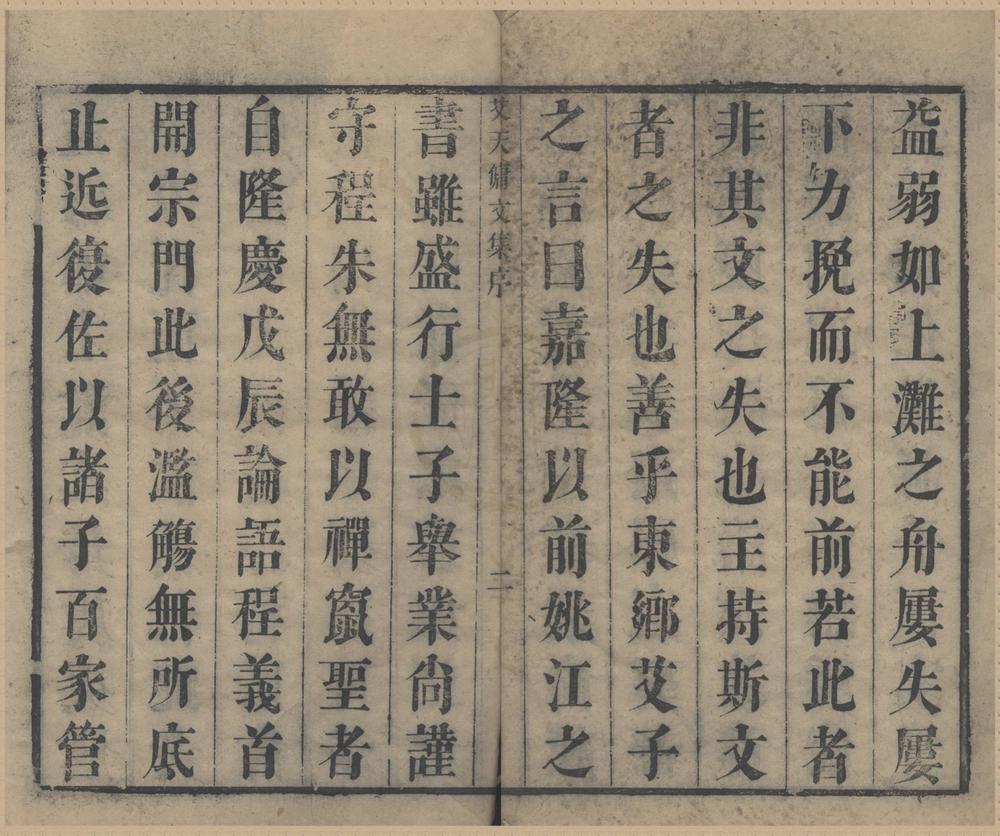 益弱如上灘之舟屢失屢
下力挽而不能前若此者
非其文之失也主持斯文
者之失也善乎東鄉艾子
之言曰嘉隆以前姚江之
艾天傭文集序
二
書雖盛行士子舉業尚謹
守程朱無敢以禪竄聖者
自隆慶戊辰論語程義首
開宗門此後濫觴無所底
止近復佐以諸子百家管